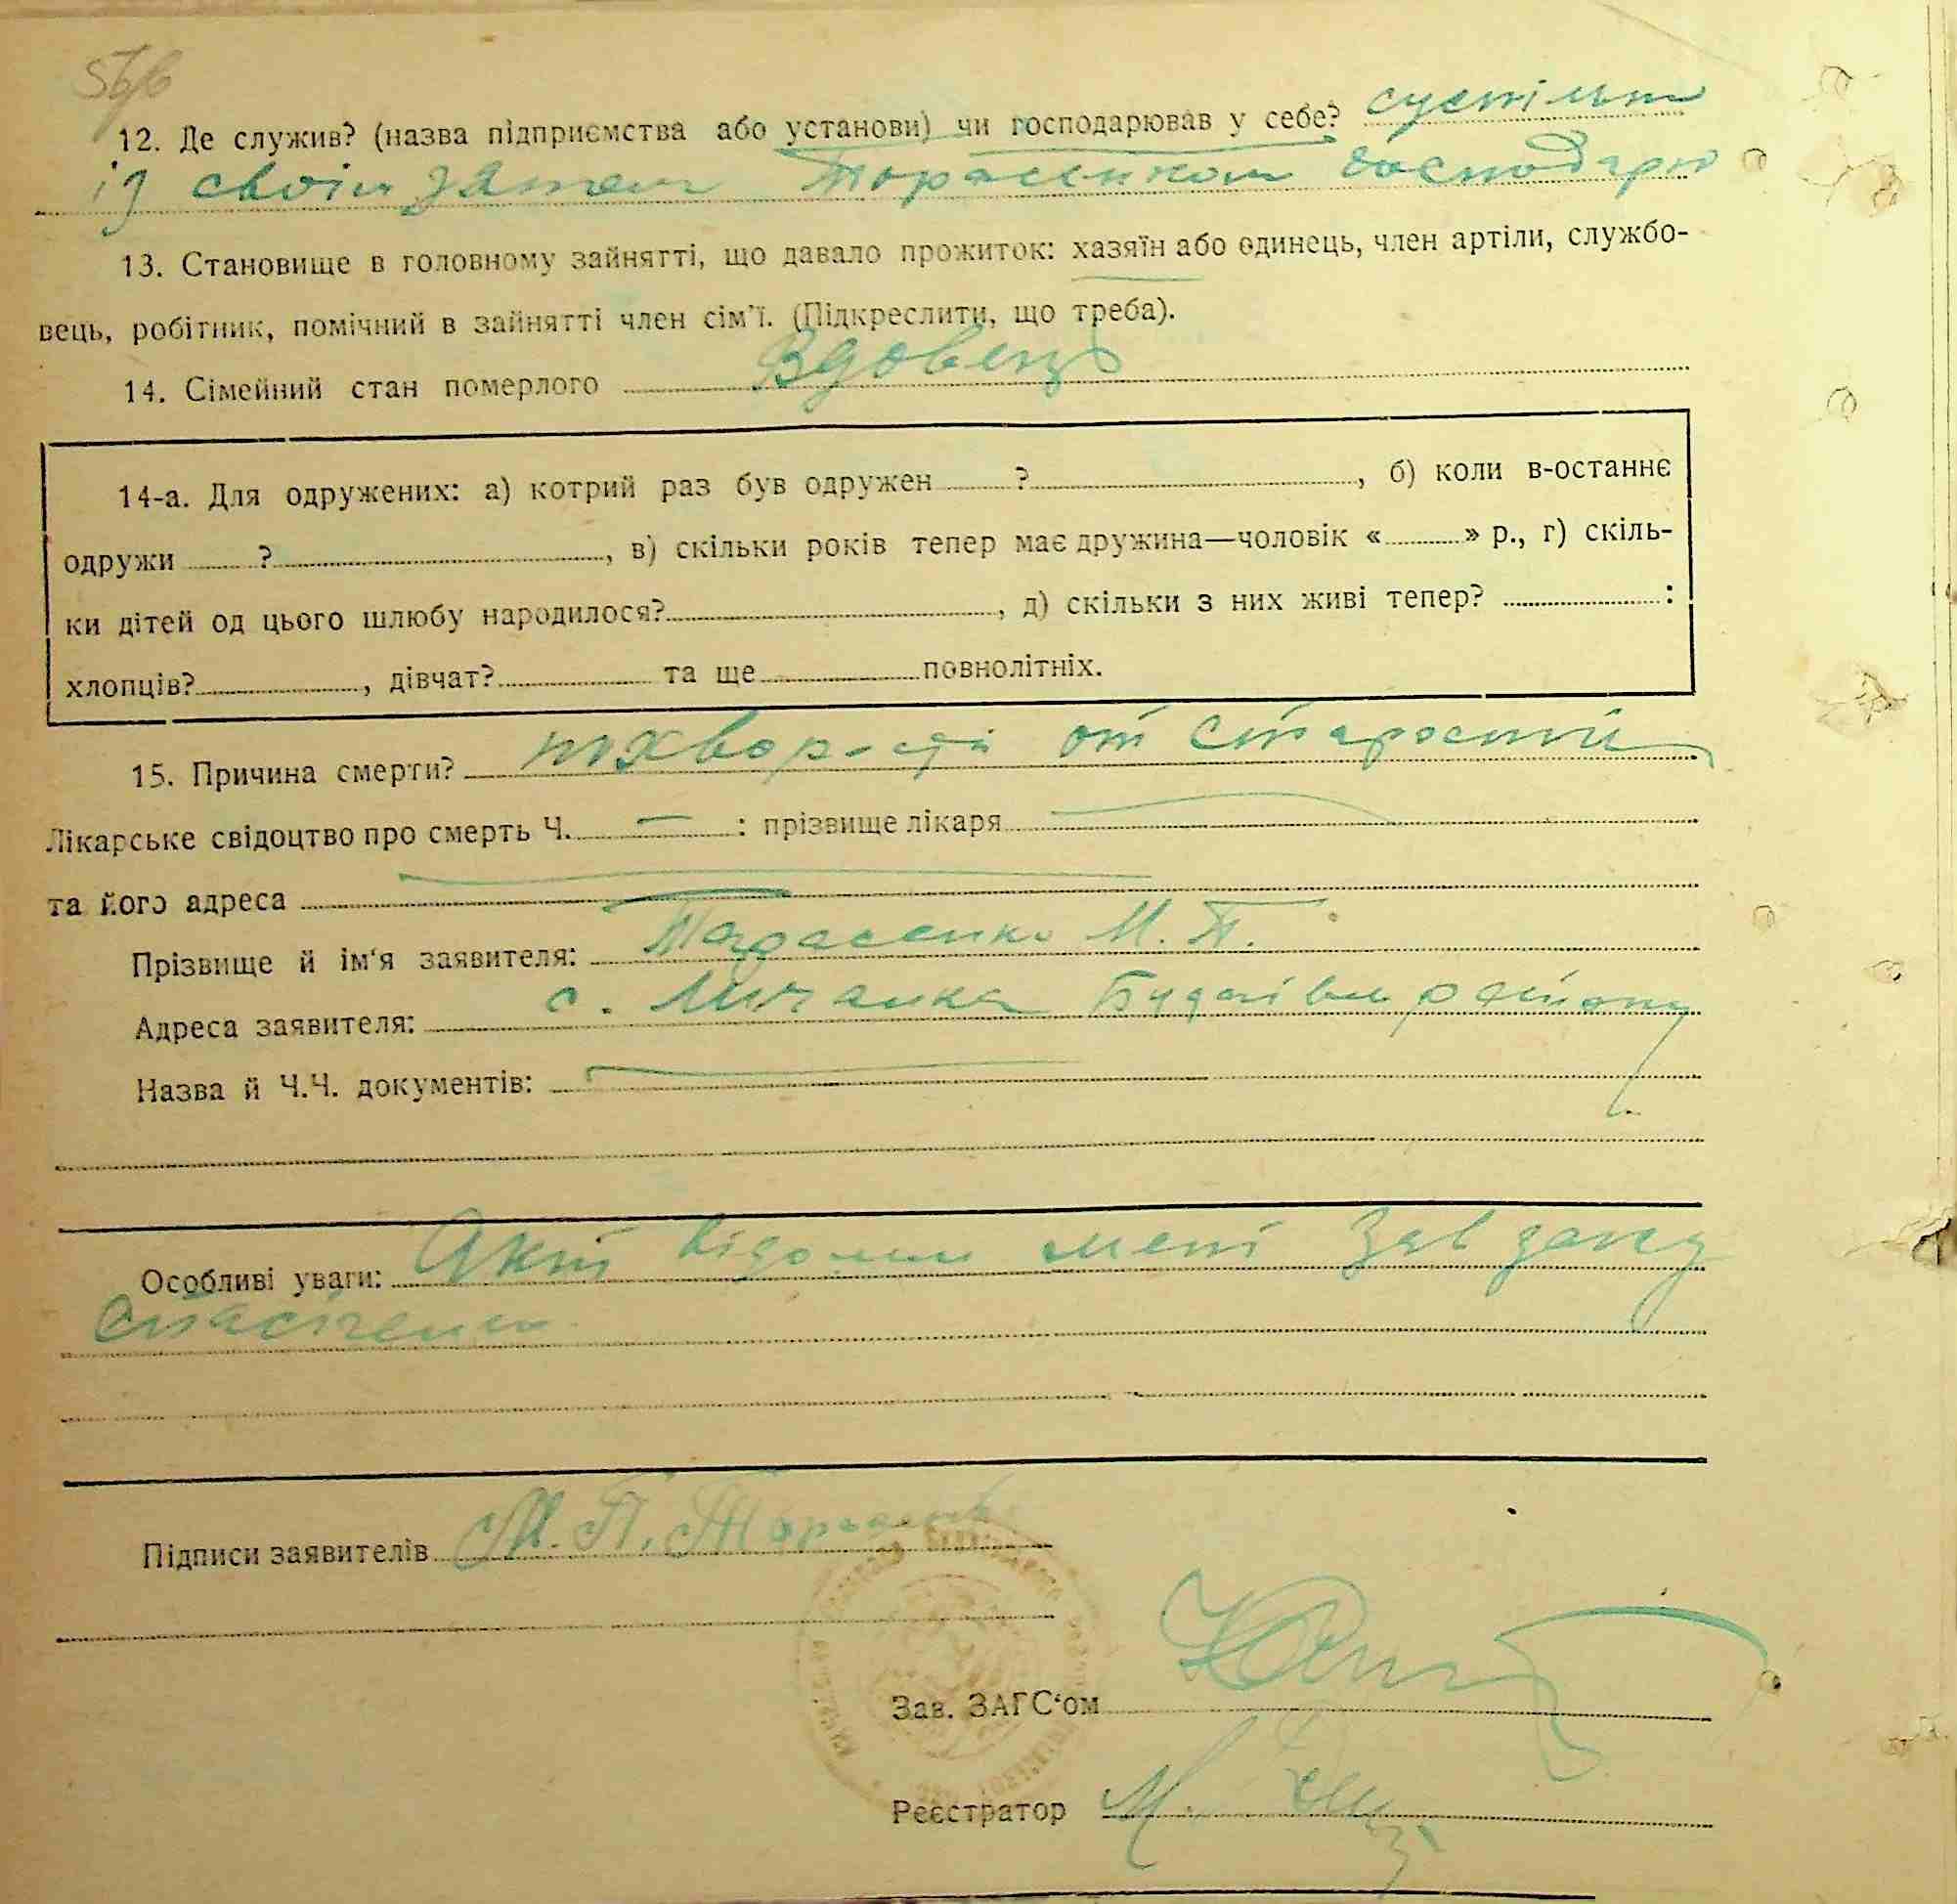 12. Де служив? (назва підприємства або установи) чи господарював у себе? суспільно
із своїм зятем Тарасенком господарю
13. Становище в головному зайнятті, що давало прожиток: хазяїн або одинець, член артіли, службо-
вець, робітник, помічний в зайнятті член сім'ї. (Підкреслити, що треба).
14. Сімейний стан померлого Вдовець
14-а. Для одружених: а) котрий раз був одружен ? , б) коли в-останнє
одружи ? , в) скільки років тепер має дружина—чоловік « » р., г) скіль-
ки дітей од цього шлюбу народилося? , д) скільки з них живі тепер? :
хлопців? , дівчат? та ще повнолітніх.
15. Причина смерти? от старости
Лікарське свідоцтво про смерть Ч. — : прізвище лікаря
та його адреса
Прізвище й ім'я заявителя: Тарасенко М. П.
Адреса заявителя: с. Личанка району
Назва й Ч.Ч. документів:
Особливі уваги:
Підписи заявителів М. П. Тарасенко
Зав. ЗАГС'ом
Реєстратор М.